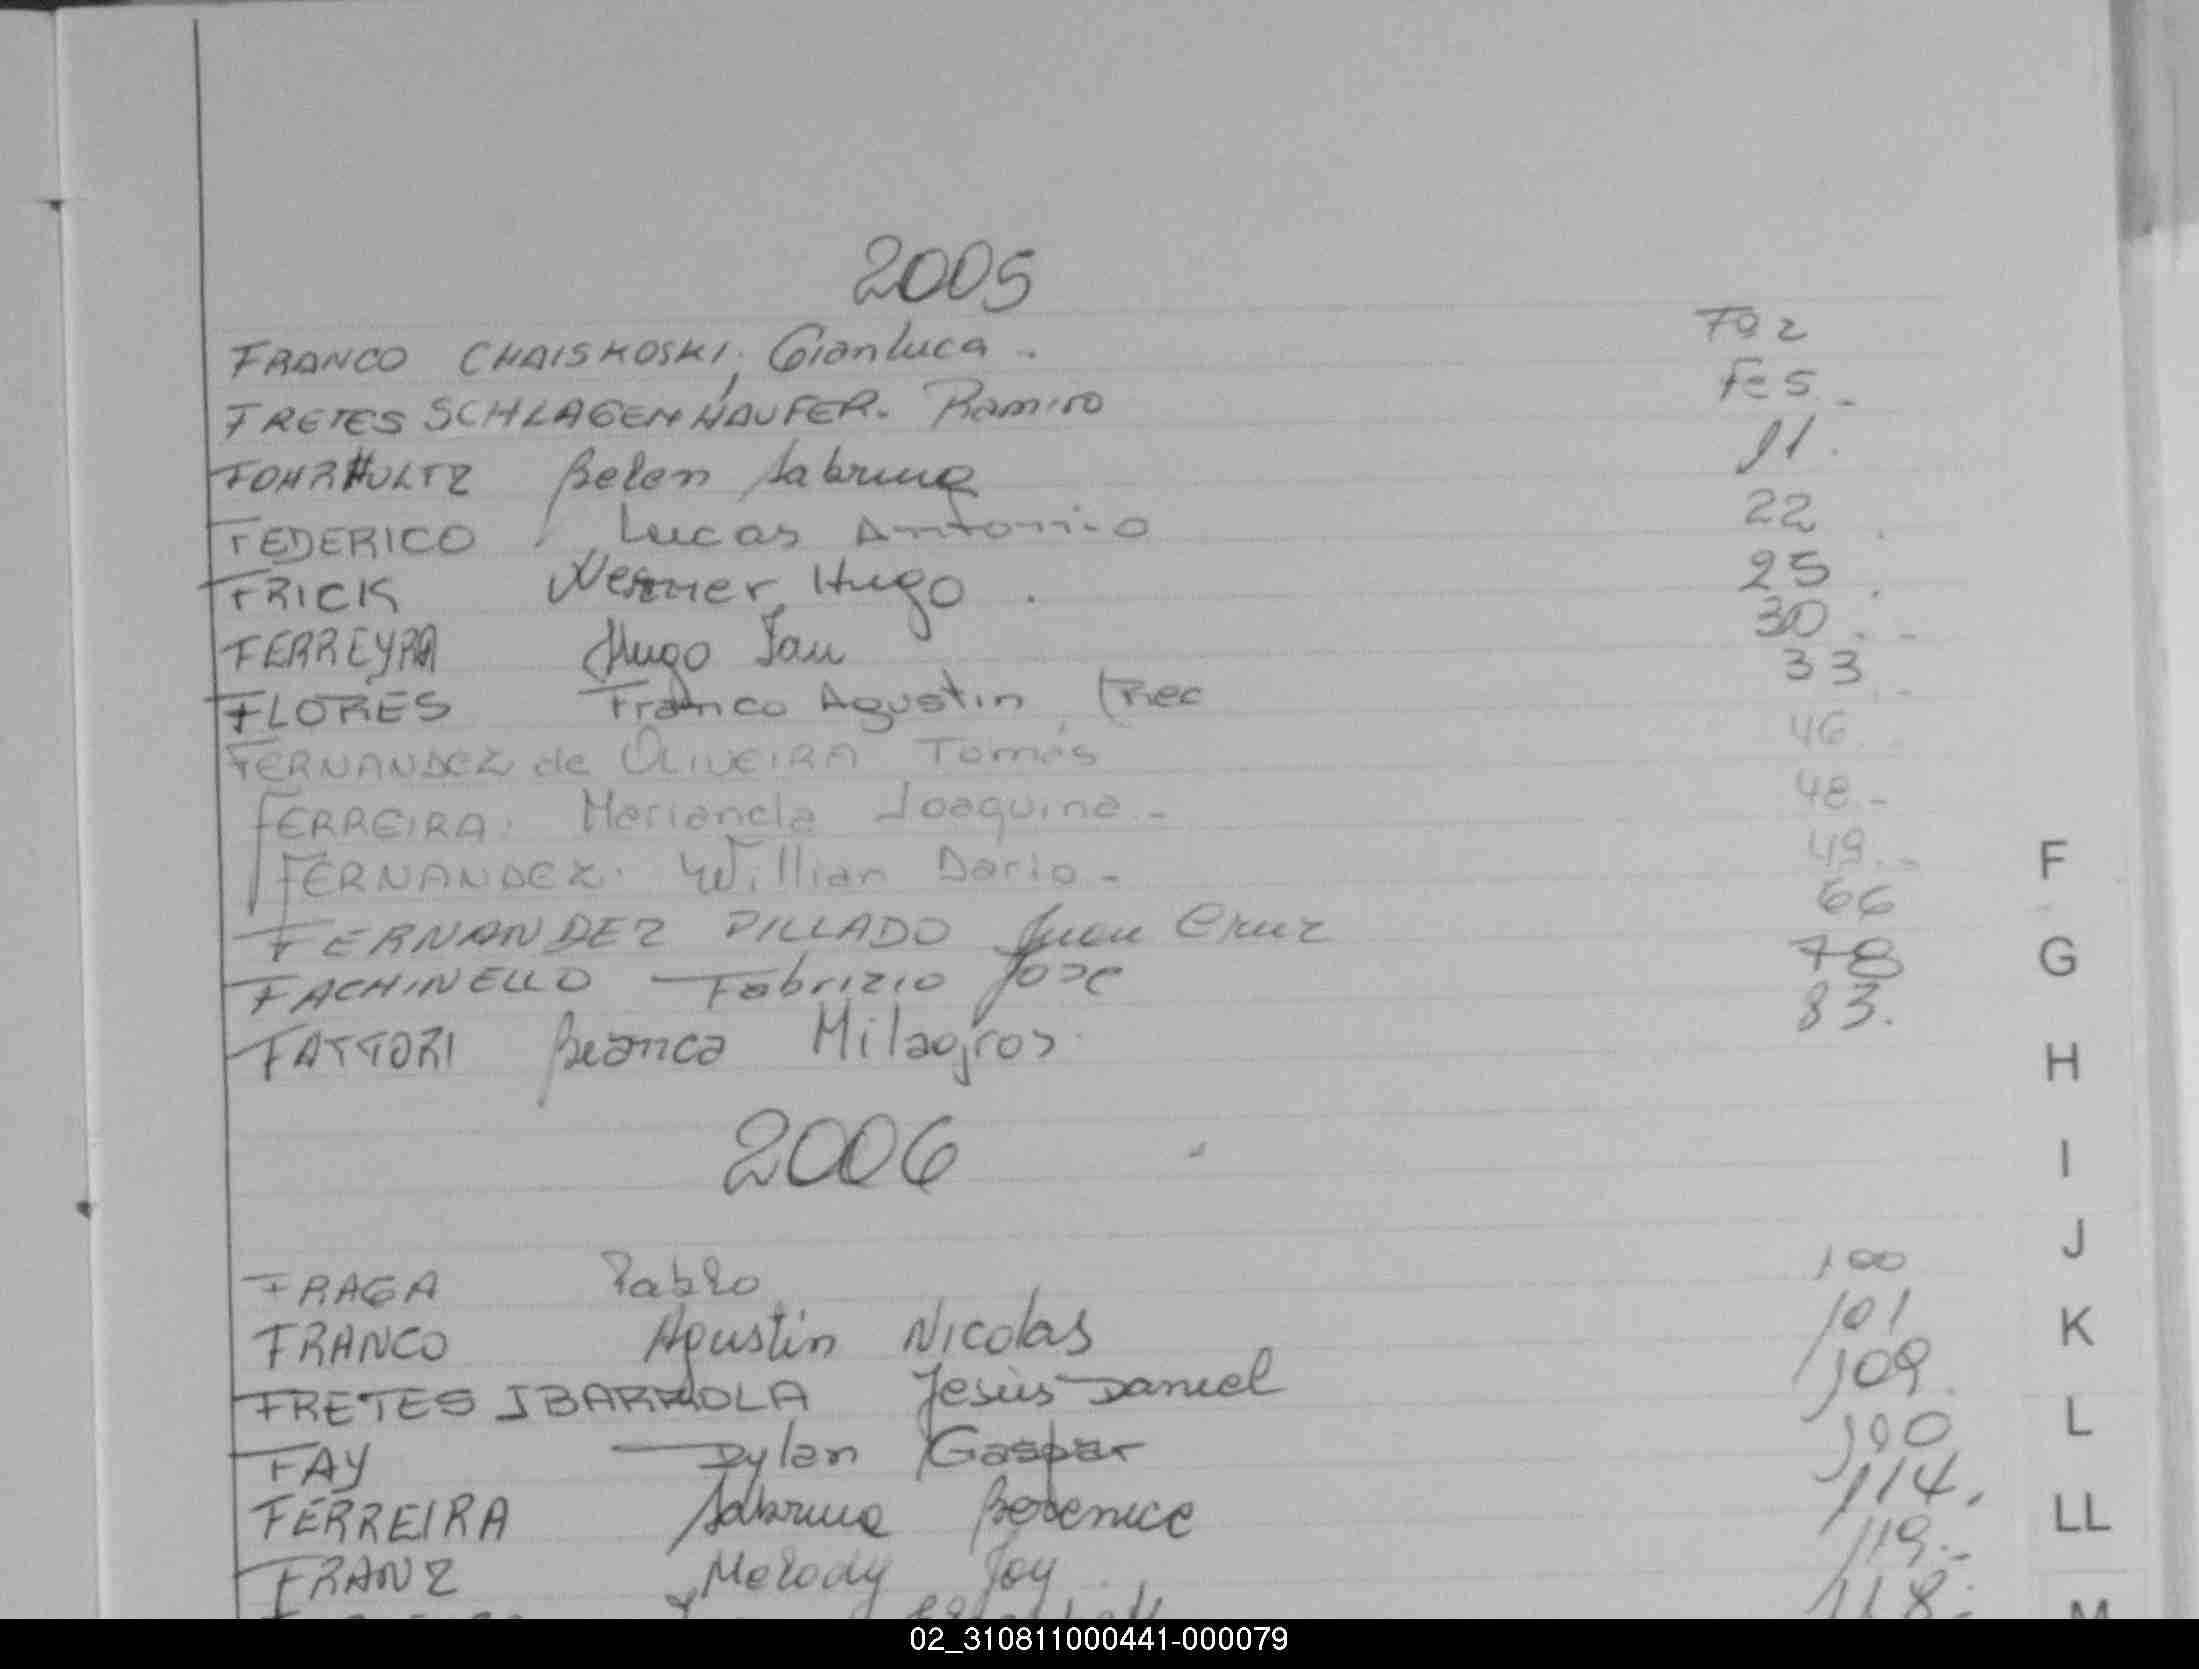 2005
FRANCO CHAISKOSKI, Gianluca. Fo 2
FRETES SCHLAGENHAUFER. Ramiro Fo 5
FOHRHULTZ Belen Sabrina 11.
FEDERICO Lucas Antonio 22
FRICK Werner Hugo 25
FERREYRA Hugo Ian 30
FLORES Franco Agustin (Rec 33
FERNANDEZ de OLIVEIRA Tomás 46
FERREIRA. Marianela Joaquina.- 48.-
FERNANDEZ. Willian Dario- 49.-
FERNANDEZ PILLADO Juan Cruz 66
FACHINELLO Fabrizio Jose 78
FATTORI Bianca Milagros 83.
2006
FRAGA Pablo 100
FRANCO Agustin Nicolas 101
FRETES IBARROLA Jesús Daniel 109
FAY Dylan Gaspar
FERREIRA Sabrina Berenice 114.
FRANZ Melody Joy 119.-
118.-
F
G
H
I
J
K
L
LL
M
02_310811000441-000079